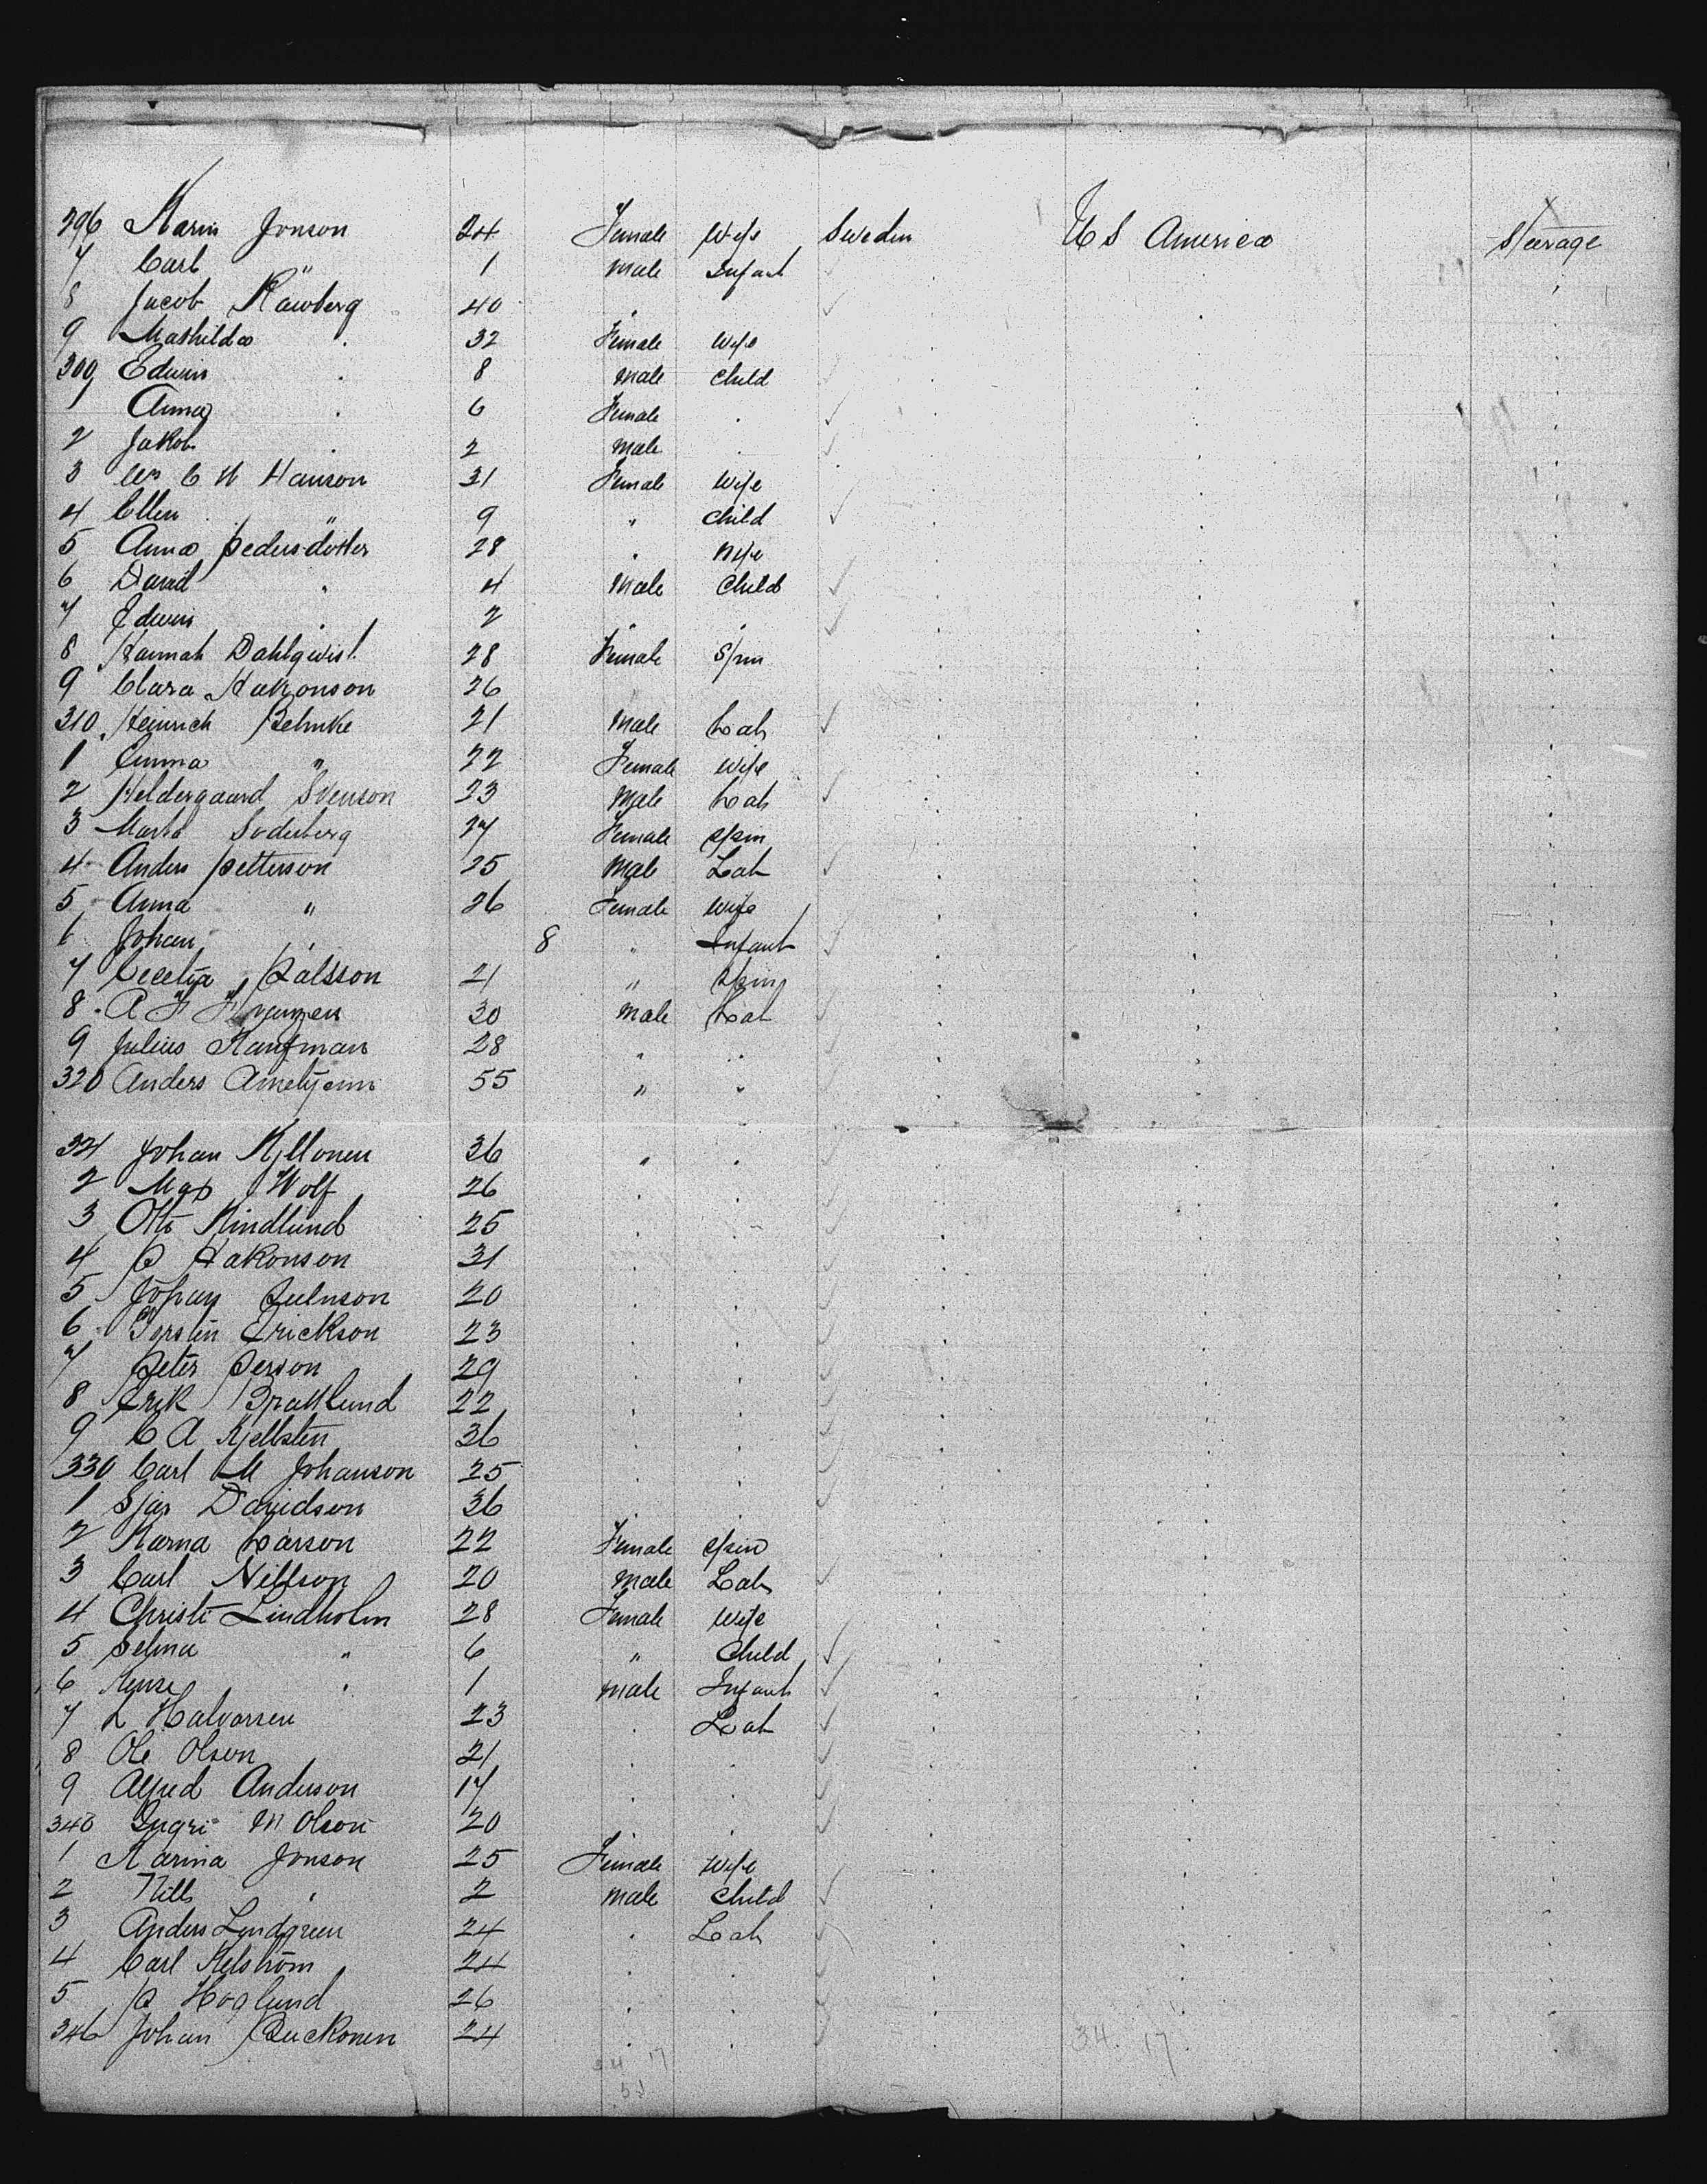 296 Karin Jonson 24 Female Wife Sweden U S America Steerage
7 Carl " 1 Male Infant
8 Jacob 40 .
9 Mathilda . 32 Female Wife
300 Edwin . 8 Male Child
1 Anna . 6 Female .
2 Jakob . 2 Male .
3 C W Hanson 31 Female Wife
4 Ellen " 9 " Child
5 Anna Peders-dotter 28 . Wife
6 David . 4 Male Child
7 Edwin . 2 .
8 Hannah Dahlqvist 28 Female Spin
9 Clara Hakonson 26
310 Heinrich Behnke 21 Male Lab
1 Emma " 22 Female Wife
2 Heldergaard Svenson 23 Male Lab
3 Marta Soderberg 27 Female Spin
4 Anders Petterson 25 Male Lab
5 Anna " 26 Female Wife
6 Johan . 8 " Infant
7 Cecelia Palsson 21 " Spin
8 A F 30 Male Lab
9 Julius Kaufman 28 " "
320 Anders 55 " "
321 Johan Kyllonen 36 " .
2 Max Wolf 26 . .
3 Otto Kindlund 25 . .
4 P Hakonson 31 . .
5 Johan 20 . .
6 Torsten Erickson 23 . .
7 Peter Person 29 . .
8 Erik Brattlund 22 . .
9 C A Kjellsten 36 . .
330 Carl M Johanson 25 . .
1 Davidson 36 . .
2 Karna Larson 22 Female Spin
3 Carl Nillson 20 Male Lab
4 Christi Lindholm 28 Female Wife
5 Selma " 6 " Child
6 . 1 Male Infant
7 L Halvorsen 23 . Lab
8 Ole Olson 21 . .
9 Alfred Anderson 17 . .
340 Ingri M Olson 20 .
1 Karina Jonson 25 Female Wife
2 Nills . 2 Male Child
3 Anders Lundgreen 24 . Lab
4 Carl Kelström 24 . .
5 P Hoglund 26 . .
346 Johan 24 . .
34. 17